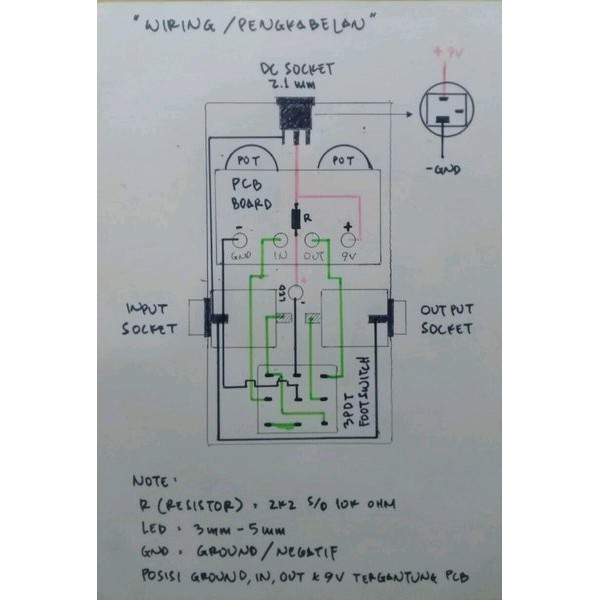 "WIRING/PENGKABELAN"
+ 9V
DC SOCKET
2.1 mm
-GND
POT
POT
PCB
BOARD
R
-
+
GND
IN
OUT
9V
+
LED
-
INPUT
SOCKET
OUTPUT
SOCKET
3PDT
FOOTSWITCH
NOTE:
R (RESISTOR) = 2K2 S/D 10K OHM
LED = 3mm - 5mm
GND = GROUND/NEGATIF
POSISI GROUND, IN, OUT & 9V TERGANTUNG PCB